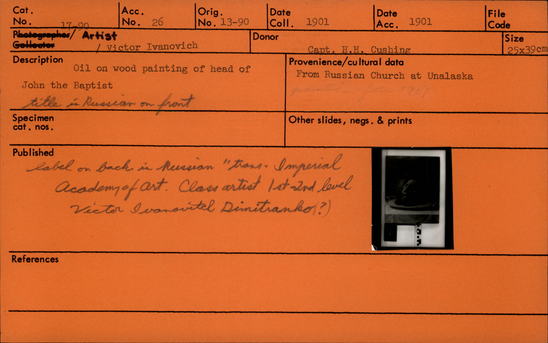 Cat. No. 17-90 Acc. No. 26 Orig. No. 13-90 Date Coll. 1901 Date Acc. 1901 File Code
Photographer/ Artist
Collector / Victor Ivanovich Donor Capt. H.H. Cushing Size 25x39cm
Description Oil on wood painting of head of
John the Baptist
title in Russian on front
Provenience/cultural data
From Russian Church at Unalaska
Specimen cat. nos.
Other slides, negs. & prints
Published
label on back in Russian "trans. Imperial
Academy of Art. Class artist 1st-2nd level
Victor Ivanovitch Dimitranko(?)
References